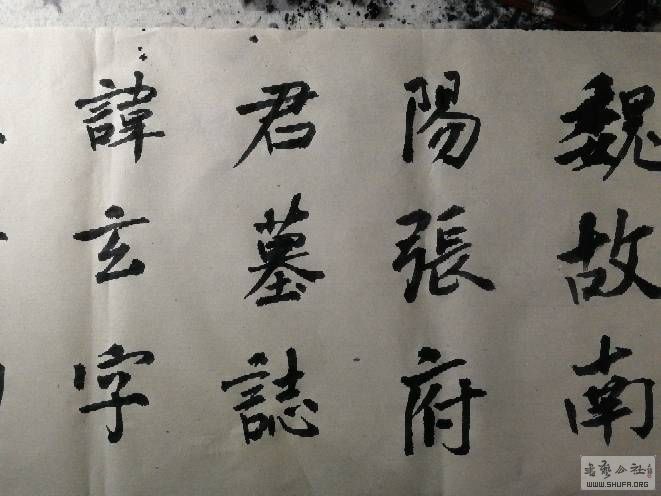 魏故南
陽張府
君墓誌
諱玄字
書藝公社
WWW.SHUFA.ORG